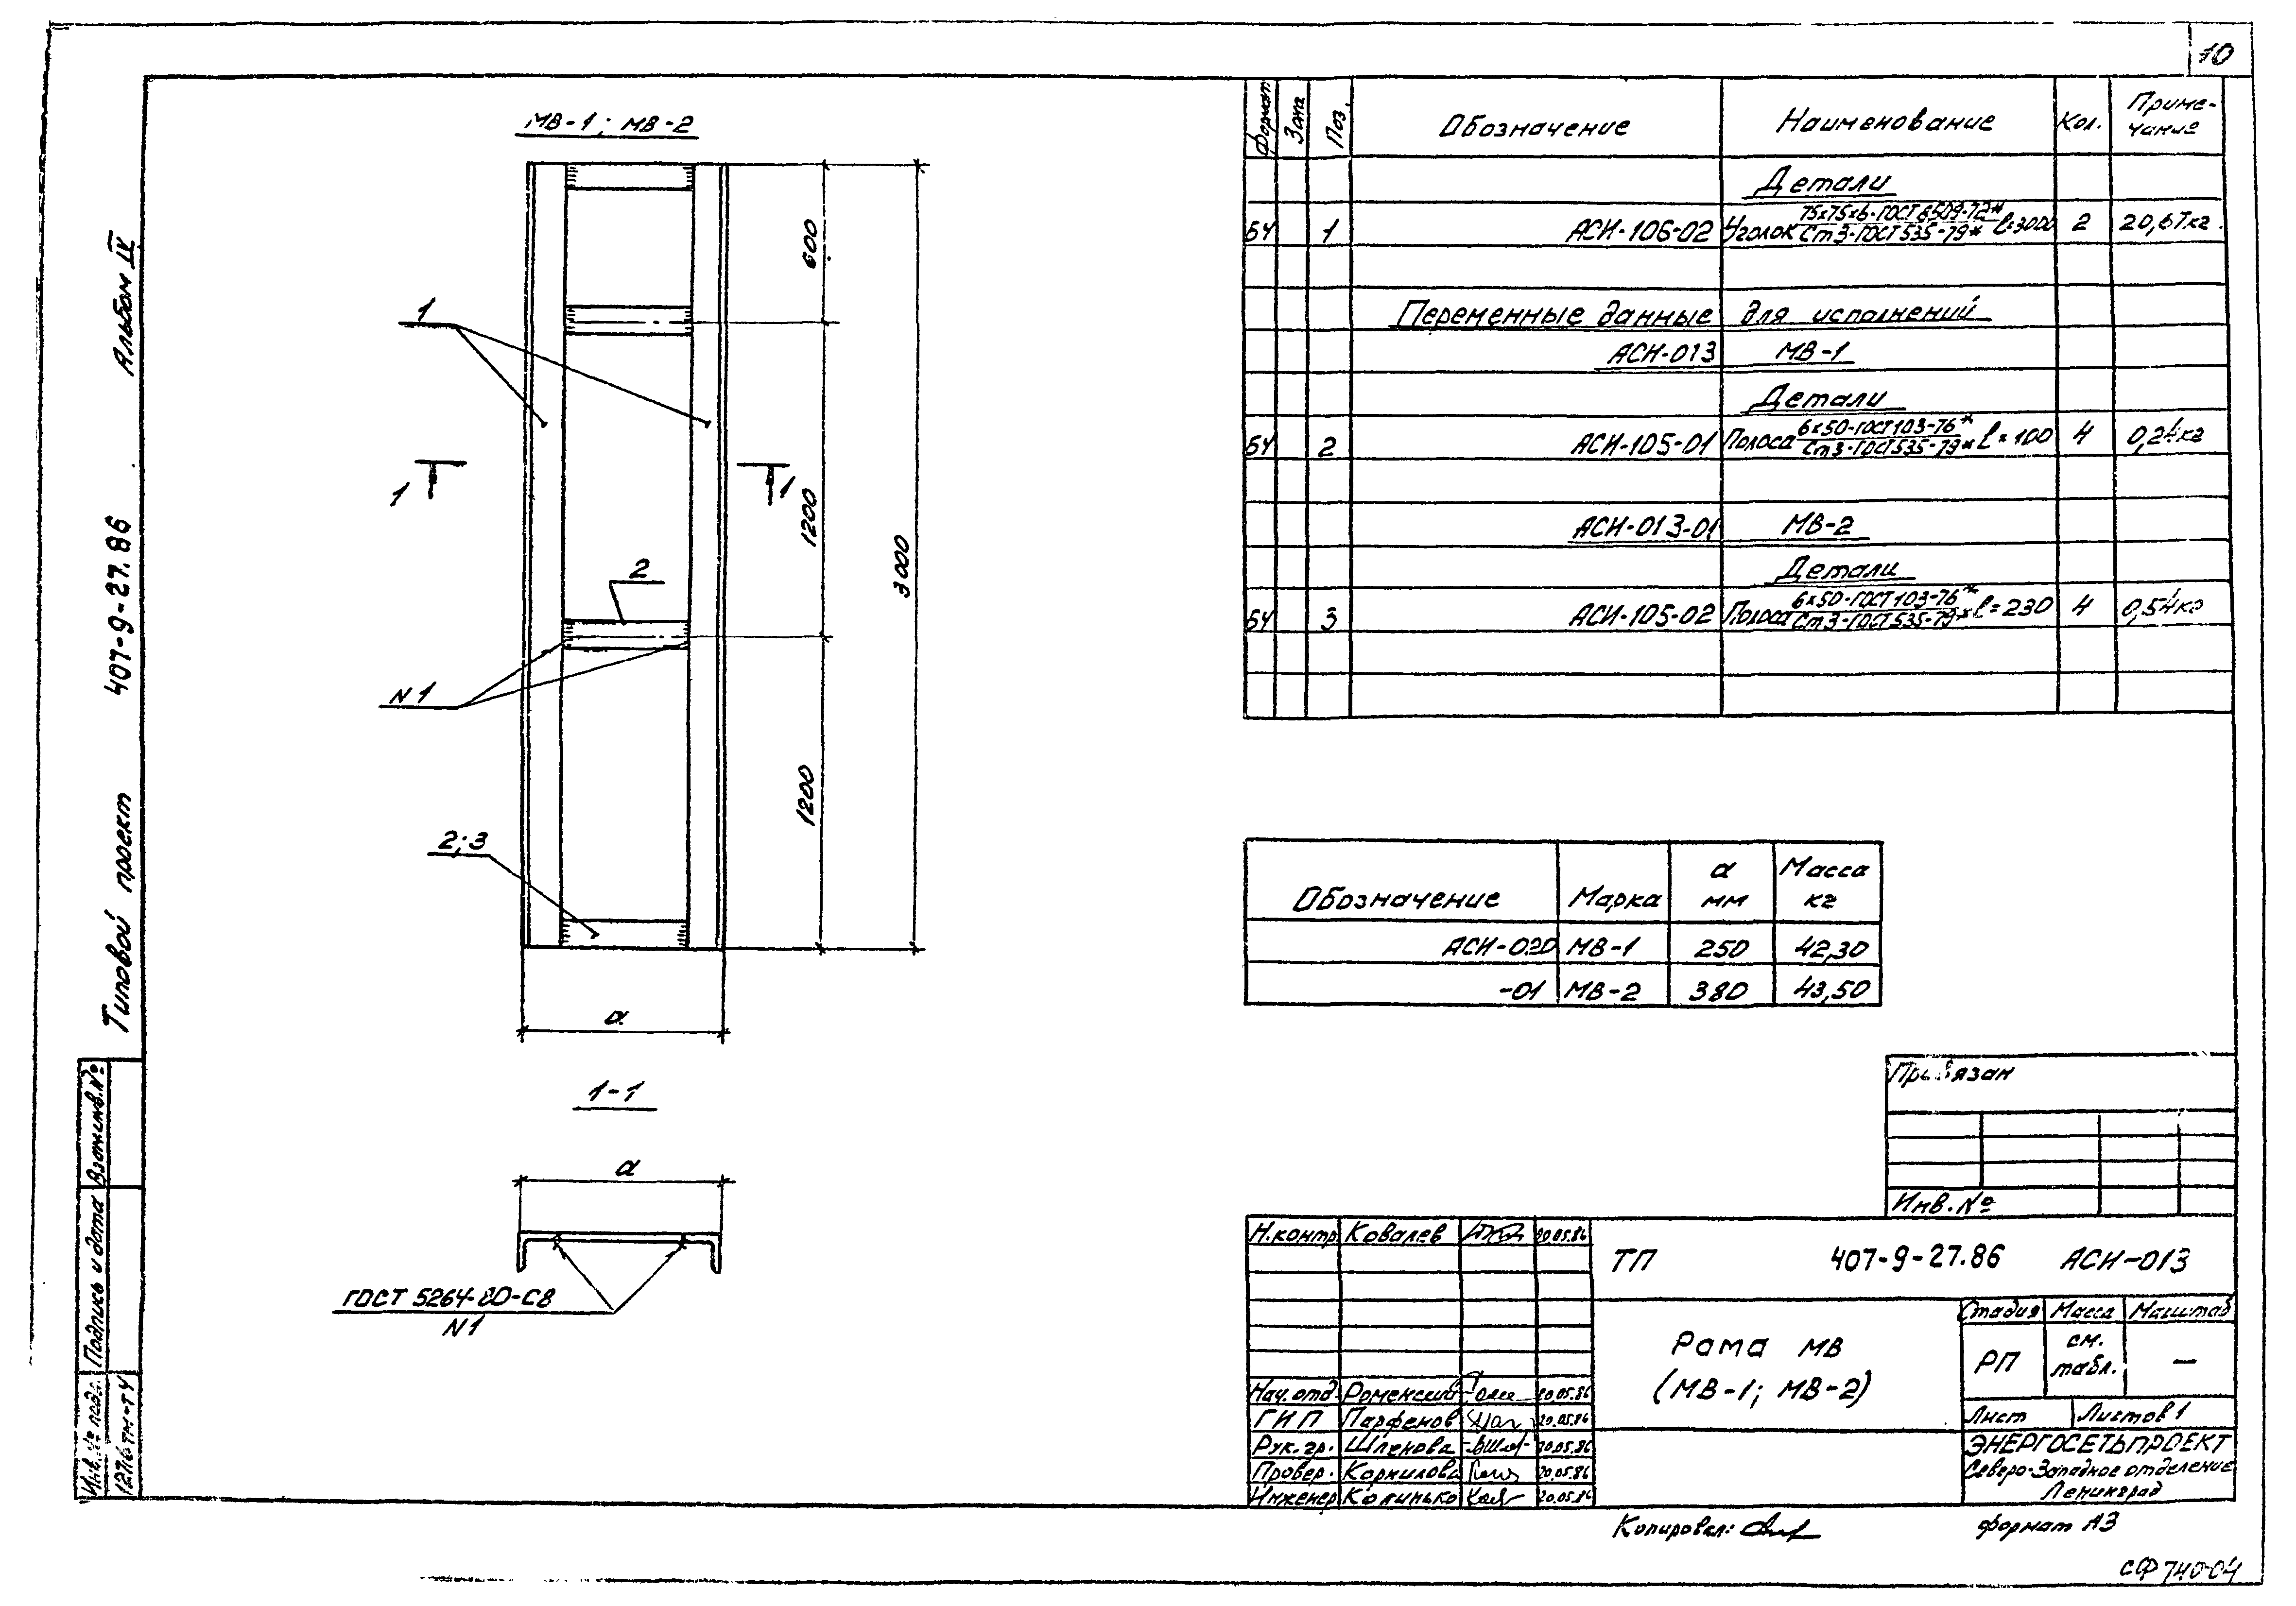 10
МВ-1; МВ-2
600
1200
1200
3000
1
1
1
2
N1
2;3
а
1-1
а
ГОСТ 5264-80-С8
N1
Альбом IV
407-9-27.86
Типовой проект
Взам.инв.№
Подпись и дата
Инв.№ подл.
12716тм-т4
Формат Зона Поз. Обозначение Наименование Кол. Приме-
чание
Детали
БЧ 1 АСИ-106-02 Уголок 75х75х6-ГОСТ 8509-72* / Ст3-ГОСТ 535-79* l=3000 2 20,67кг.
Переменные данные для исполнений
АСИ-013 МВ-1
Детали
БЧ 2 АСИ-105-01 Полоса 6х50-ГОСТ 103-76* / Ст3-ГОСТ 535-79* l=100 4 0,24кг
АСИ-013-01 МВ-2
Детали
БЧ 3 АСИ-105-02 Полоса 6х50-ГОСТ 103-76* / Ст3-ГОСТ 535-79* l=230 4 0,54кг
Обозначение Марка а мм Масса кг
АСИ-020 МВ-1 250 42,30
-01 МВ-2 380 43,50
Привязан
Инв.№
Н.контр Ковалев 20.05.86
ТП 407-9-27.86 АСИ-013
Рама МВ
(МВ-1; МВ-2)
Стадия Масса Масштаб
РП см. табл. —
Лист Листов 1
Нач.отд. Роменский 20.05.86
ГИП Парфенов 20.05.86
Рук.гр. Шленова 20.05.86
Провер. Корнилова 20.05.86
Инженер Колинько 20.05.86
ЭНЕРГОСЕТЬПРОЕКТ
Северо-Западное отделение
Ленинград
Копировал:
формат А3
СФ 740-04